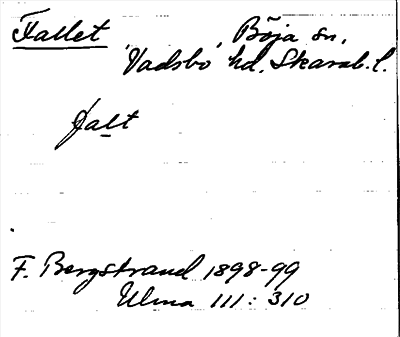 Fallet Böja sn.
Vadsbo hd. Skarab. l.
falt
F. Bergstrand 1898-99
Ulma 111: 310